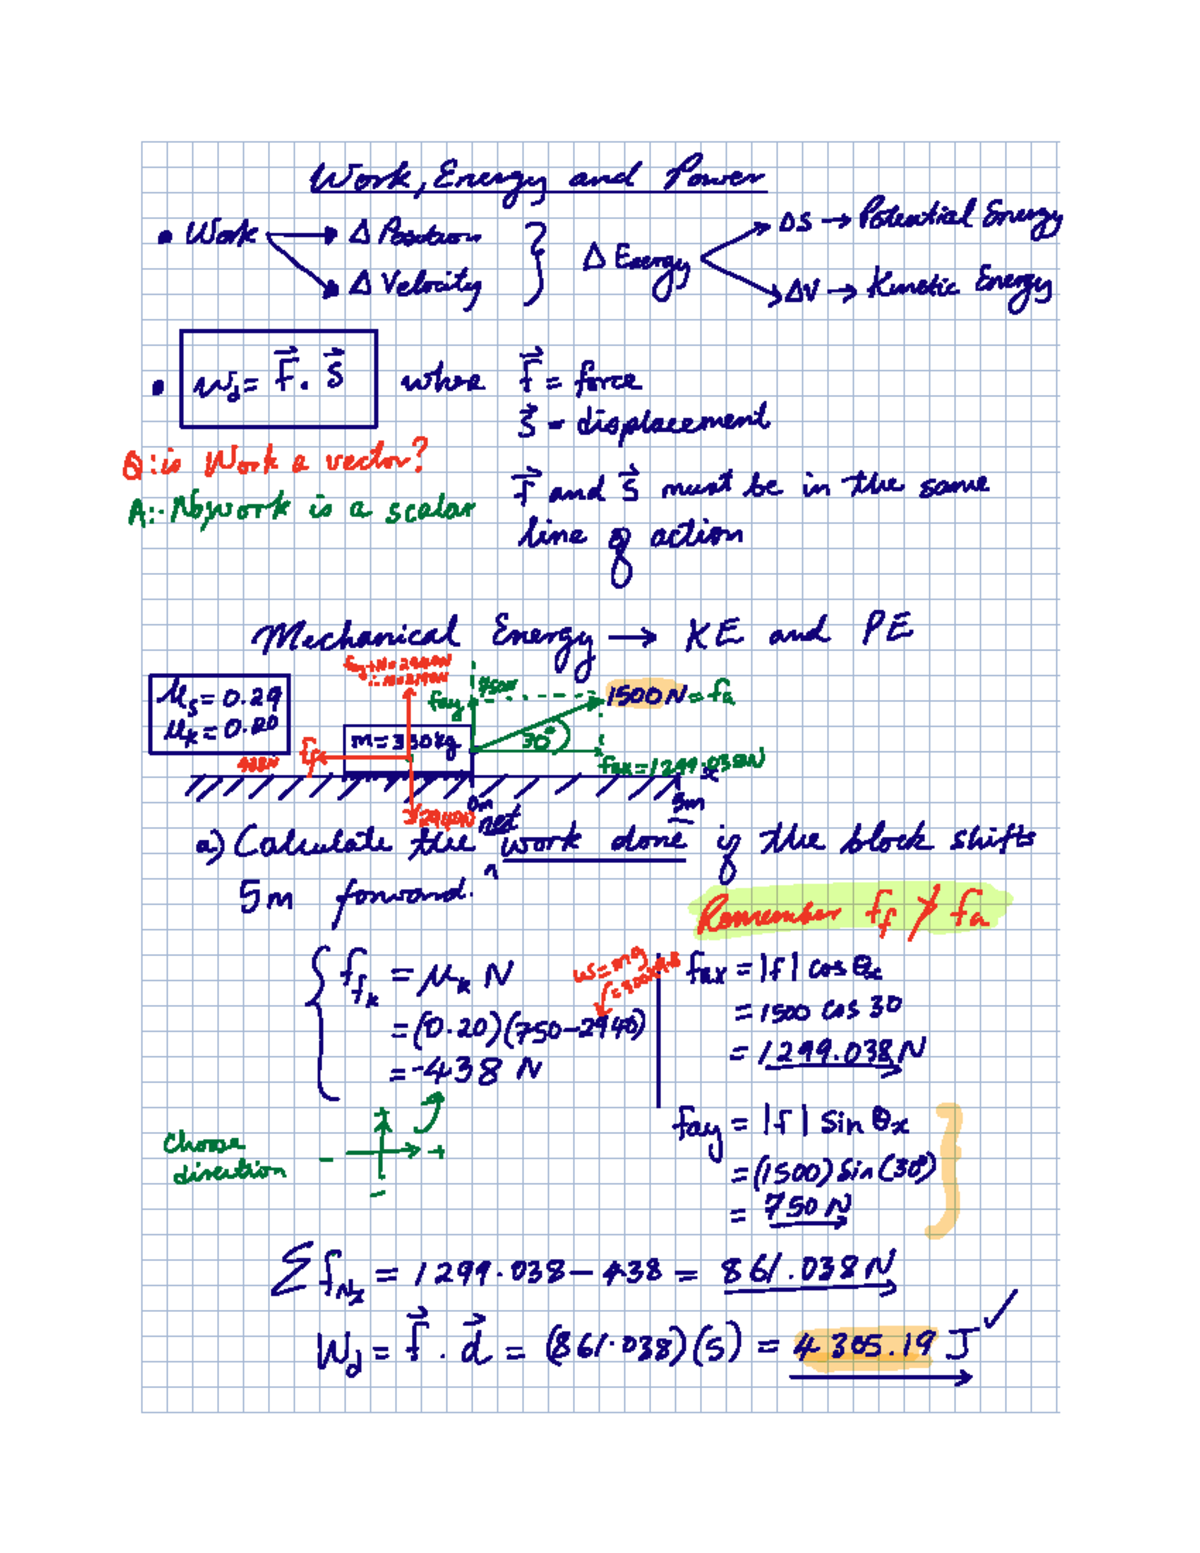 Work, Energy and Power
• Work → Δ Position
→ Δ Velocity
} Δ Energy → ΔS → Potential Energy
→ ΔV → Kinetic Energy
• Wd = F⃗ . S⃗ where f⃗ = force
S⃗ = displacement
Q: is Work a vector?
A:- No, work is a scalar
f⃗ and S⃗ must be in the same
line of action
Mechanical Energy → KE and PE
μs = 0.29
μk = 0.20
fay + N = 2940N
∴ N = 2190N
fay 750N
1500N = fa
m = 300kg
30°
ff
438N
fax = 1299.038N
x
2940N
0m
5m
a) Calculate the net work done if the block shifts
5m forward.
Remember ff ≯ fa
ffk = μk N
= (0.20)(750-2940)
= -438 N
W = mg
= 300×9.8
fax = |f| cos θx
= 1500 cos 30
= 1299.038 N
Choose
direction
- +
+
-
fay = |f| Sin θx
= (1500) Sin (30°)
= 750 N
Σ fNx = 1299.038 - 438 = 861.038N
Wd = f⃗ . d⃗ = (861.038)(5) = 4305.19 J ✓